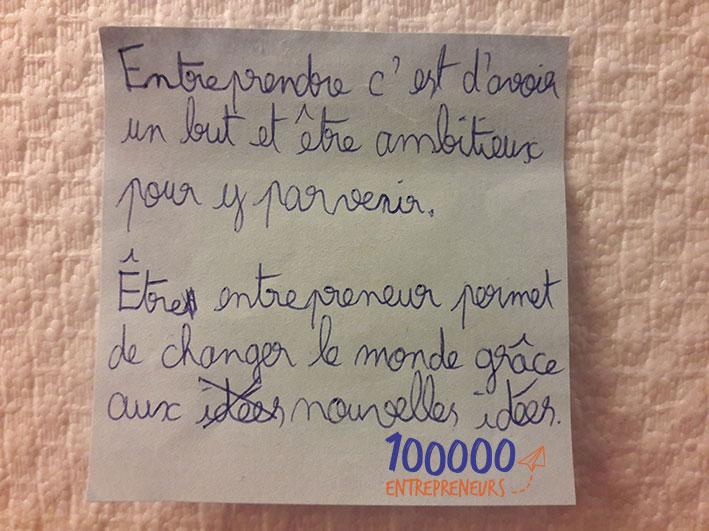 Entreprendre c'est d'avoir
un but et être ambitieux
pour y parvenir.
Être entrepreneur permet
de changer le monde grâce
aux idées nouvelles idées.
100000
ENTREPRENEURS